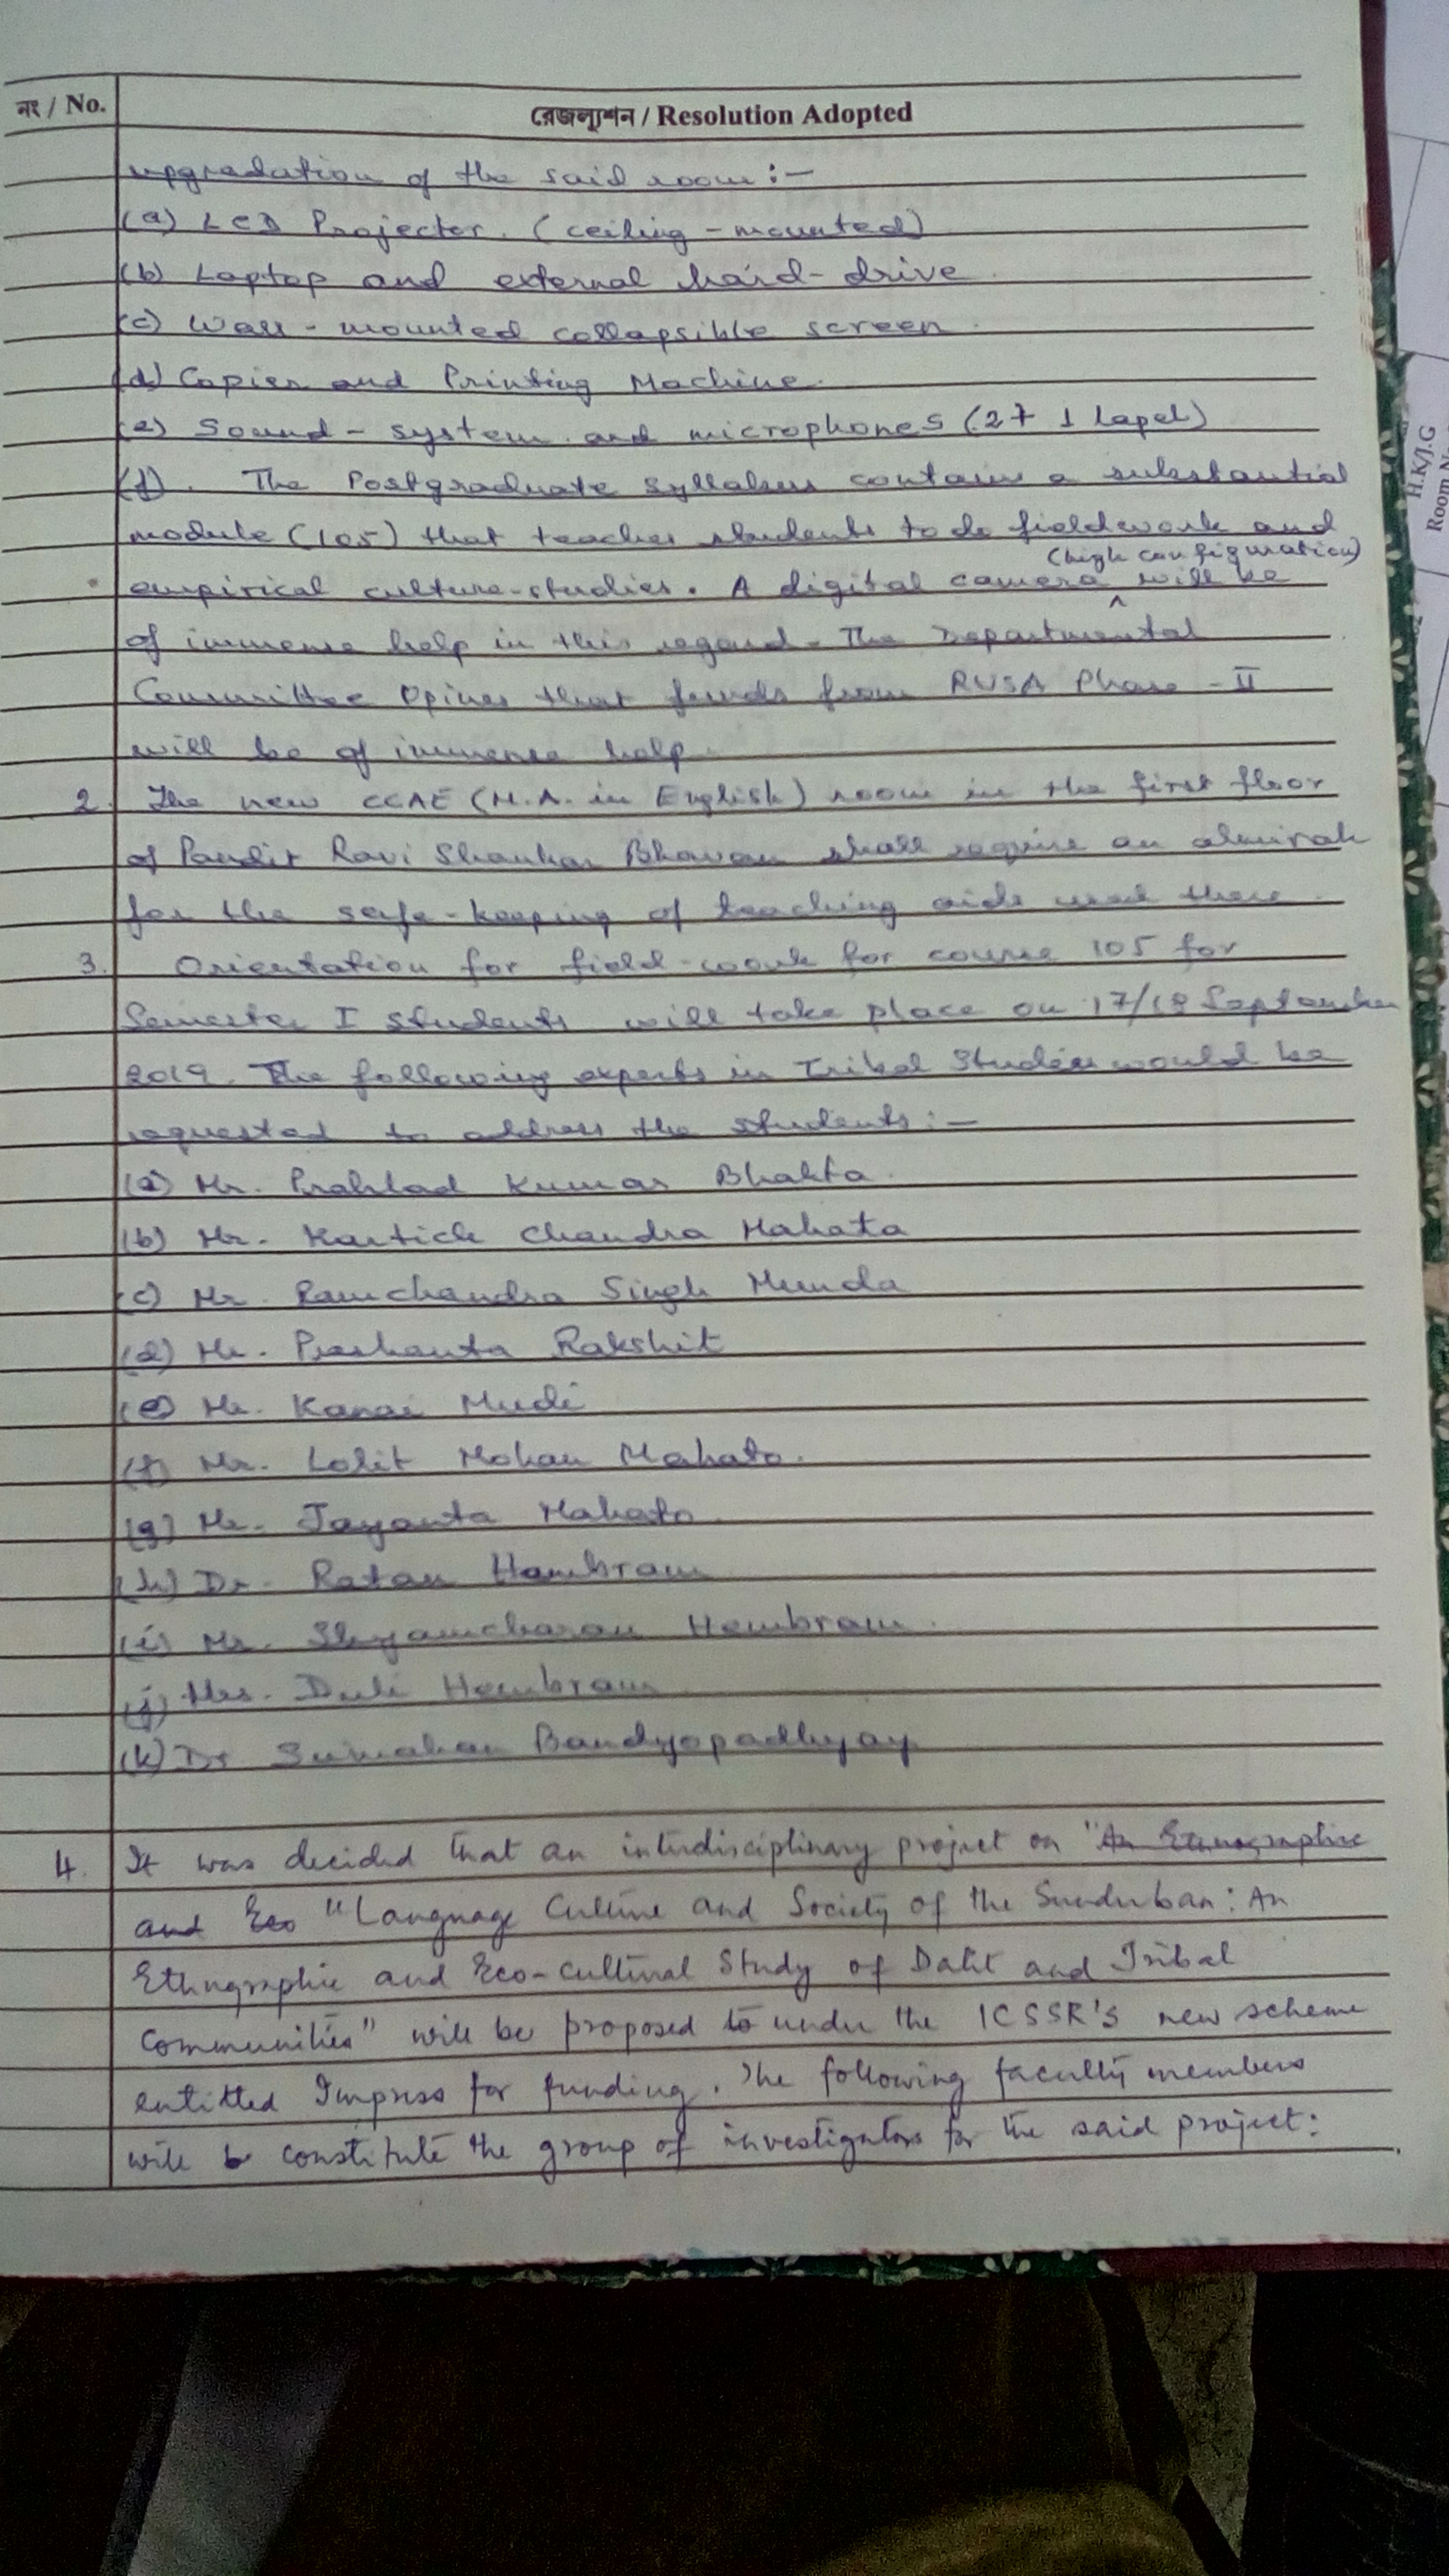 নং / No.
রেজল্যুশন / Resolution Adopted
upgradation of the said room :—
(a) LCD Projector. (ceiling-mounted)
(b) Laptop and external hard-drive
(c) Wall-mounted collapsible screen.
(d) Copier and Printing Machine.
(e) Sound-system and microphones (2+1 Lapel)
(f). The Postgraduate Syllabus contains a substantial
module (105) that teaches students to do fieldwork and
(high configuration)
empirical culture-studies. A digital camera ^ will be
of immense help in this regard. The Departmental
Committee Opines that funds from RUSA Phase-II
will be of immense help.
2. The new CCAE (M.A. in English) room in the first floor
of Pandit Ravi Shankar Bhavan shall require an almirah
for the safe-keeping of teaching aids used there.
3. Orientation for field-work for course 105 for
Semester I students will take place on 17/18 September
2019. The following experts in Tribal Studies would be
requested to address the students :—
(a) Mr. Prahlad Kumar Bhakta.
(b) Mr. Kartick Chandra Mahata
(c) Mr. Ramchandra Singh Munda
(d) Mr. Prashanta Rakshit
(e) Mr. Kanai Mudi
(f) Mr. Lolit Mohan Mahato.
(g) Mr. Jayanta Mahato
(h) Dr. Ratan Hembram
(i) Mr. Shyamcharan Hembram.
(j) Mrs. Duli Hembram
(k) Dr Sumahan Bandyopadhyay
4. It was decided that an interdisciplinary project on "An Ethnographic
and Eco "Language Culture and Society of the Sundurban: An
Ethngraphic and Eco-cultural Study of Dalit and Tribal
Communities" will be proposed to under the ICSSR's new scheme
entitled Impress for funding. The following faculty members
will b constitute the group of investigators for the said project:
H.K/J.G
Room